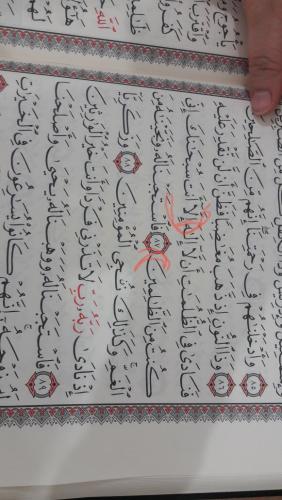 ٨٥ وَأَدْخَلْنَٰهُمْ فِى رَحْمَتِنَآ إِنَّهُم مِّنَ ٱلصَّٰلِحِينَ
٨٦ وَذَا ٱلنُّونِ إِذ ذَّهَبَ مُغَٰضِبًا فَظَنَّ أَن لَّن نَّقْدِرَ عَلَيْهِ
فَنَادَىٰ فِى ٱلظُّلُمَٰتِ أَن لَّآ إِلَٰهَ إِلَّآ أَنتَ سُبْحَٰنَكَ إِنِّى
كُنتُ مِنَ ٱلظَّٰلِمِينَ ٨٧ فَٱسْتَجَبْنَا لَهُۥ وَنَجَّيْنَٰهُ مِنَ
ٱلْغَمِّ وَكَذَٰلِكَ نُـۨجِى ٱلْمُؤْمِنِينَ ٨٨ وَزَكَرِيَّآ
إِذْ نَادَىٰ رَبَّهُۥ رَبِّ لَا تَذَرْنِى فَرْدًا وَأَنتَ خَيْرُ ٱلْوَٰرِثِينَ
٨٩ فَٱسْتَجَبْنَا لَهُۥ وَوَهَبْنَا لَهُۥ يَحْيَىٰ وَأَصْلَحْنَا
لَهُۥ زَوْجَهُۥٓ إِنَّهُمْ كَانُوا۟ يُسَٰرِعُونَ فِى ٱلْخَيْرَٰتِ